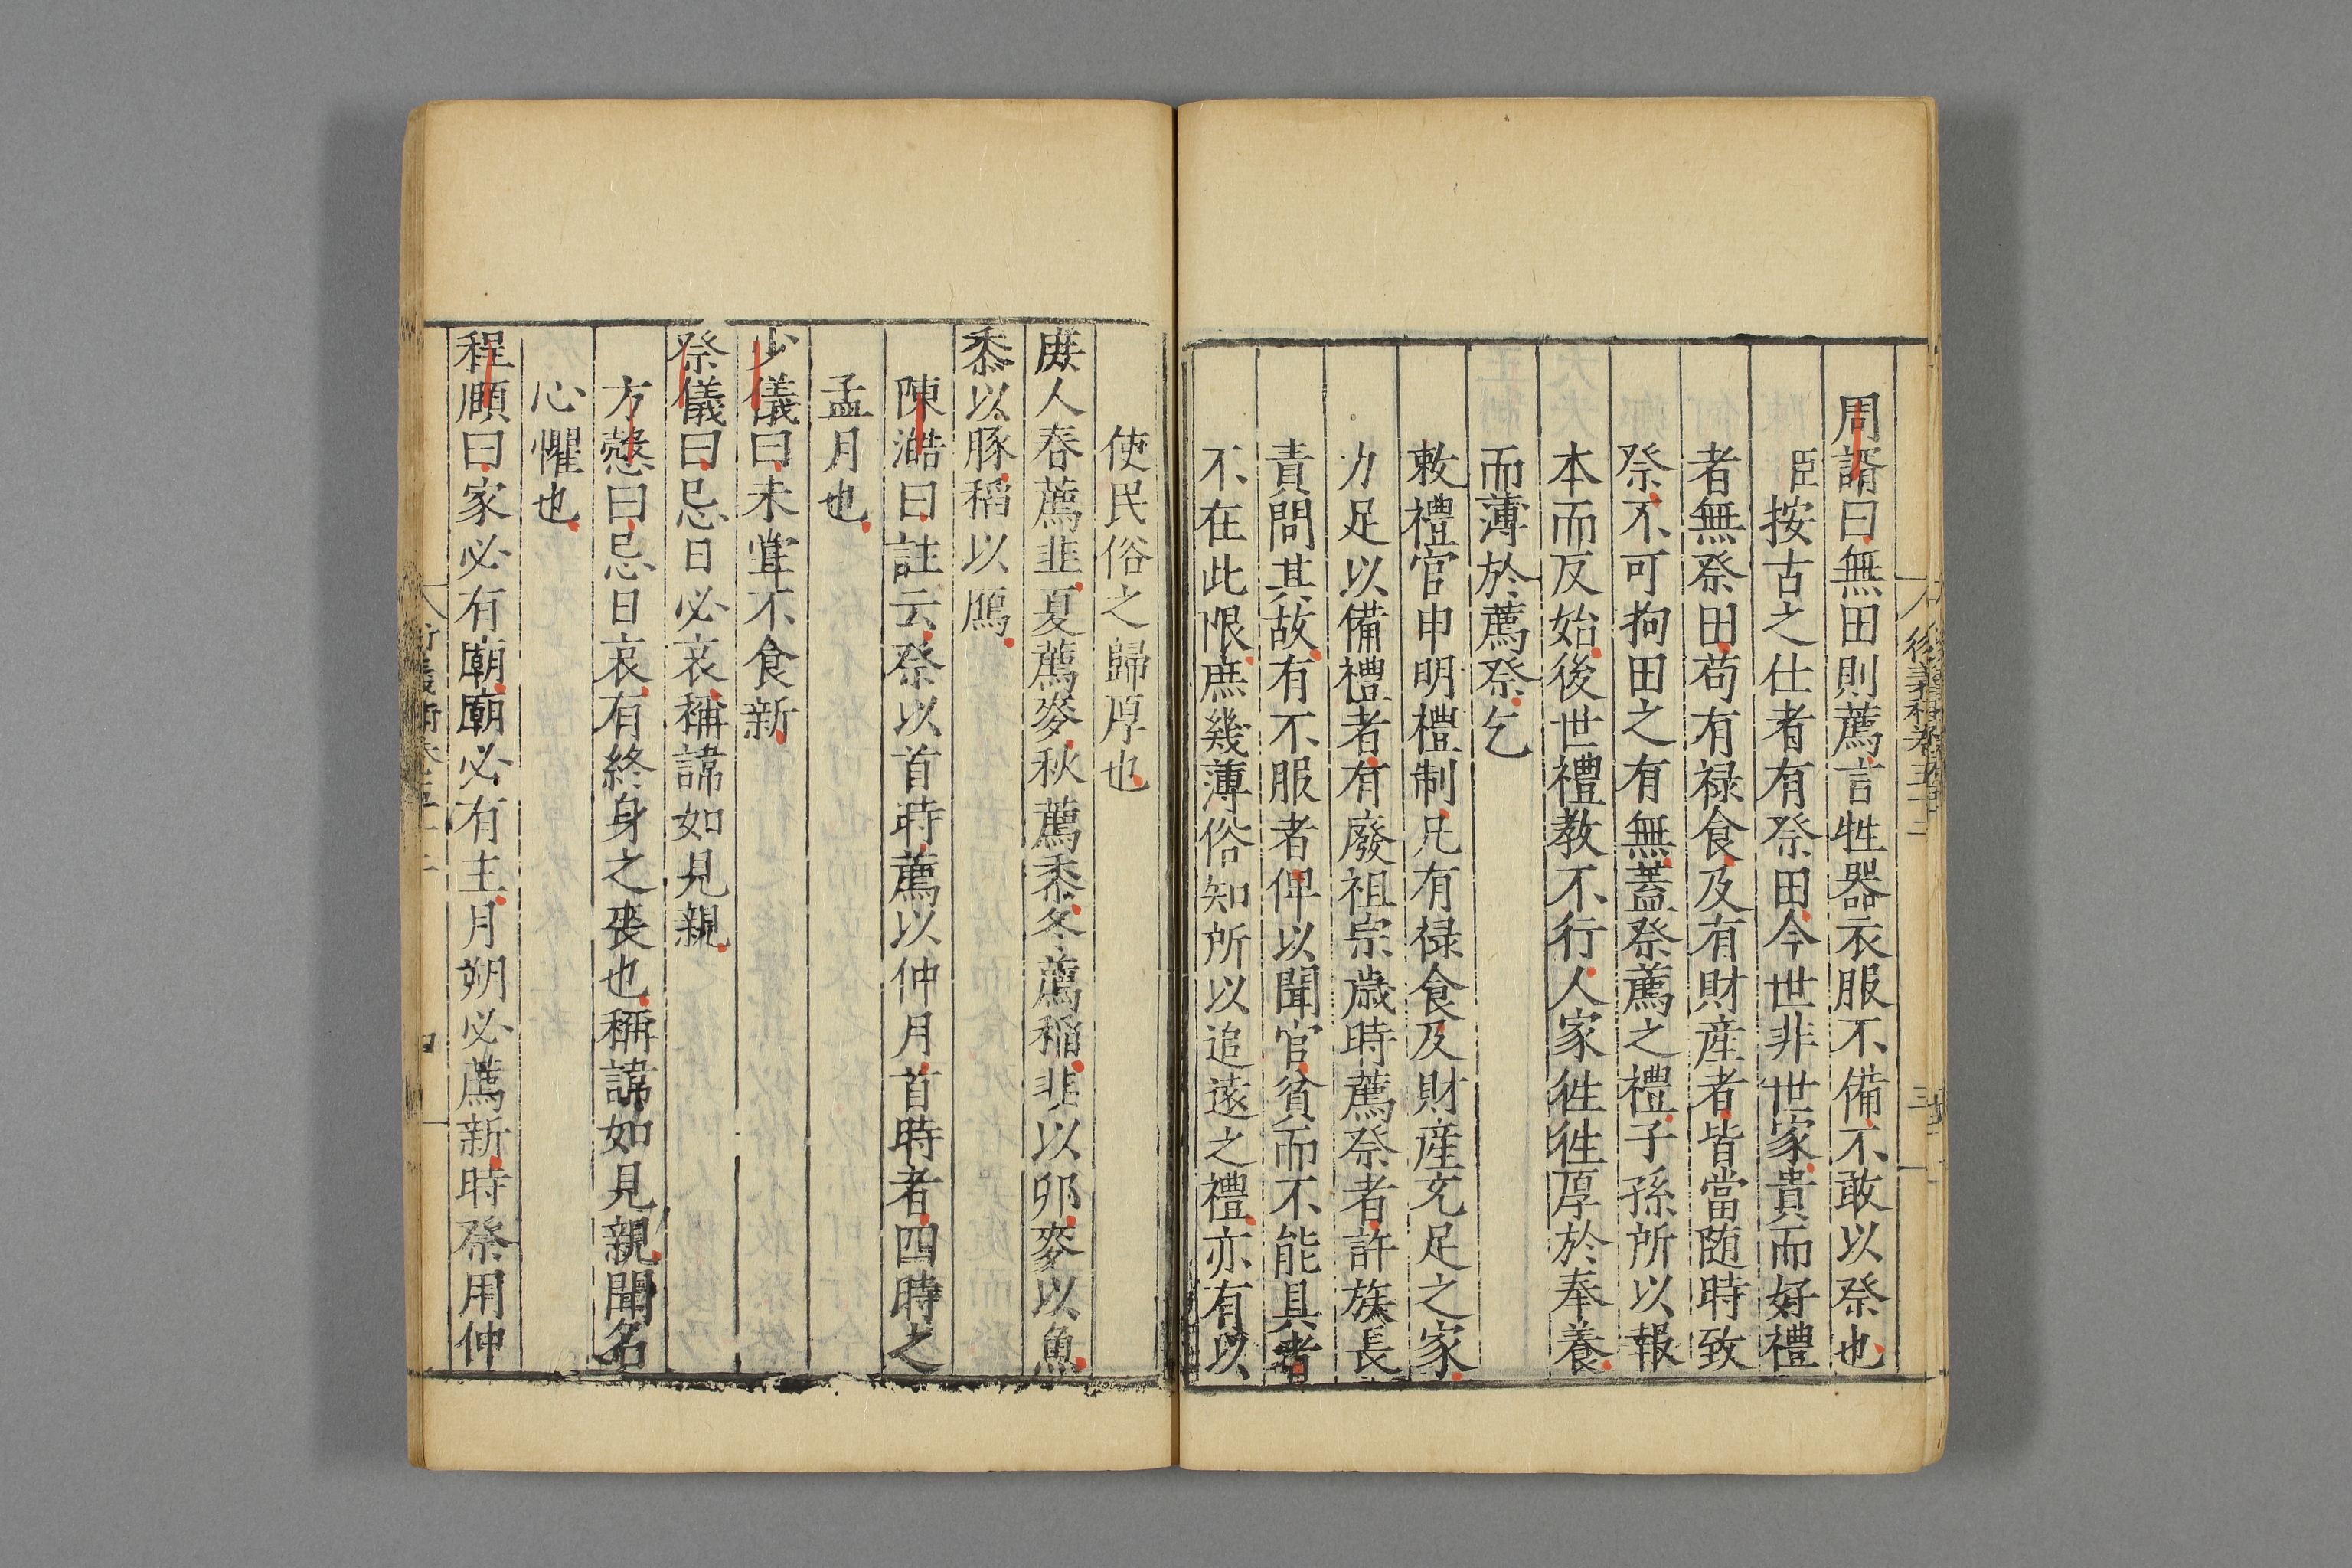 周諝曰無田則薦言牲器衣服不備不敢以祭也
臣按古之仕者有祭田今世非世家貴而好禮
者無祭田苟有禄食及有財産者皆當随時致
祭不可拘田之有無蓋祭薦之禮子孫所以報
本而反始後世禮教不行人家徃徃厚於奉養
而薄於薦祭乞
敕禮官申明禮制凡有禄食及財産充足之家
力足以備禮者有廢祖宗歲時薦祭者許族長
責問其故有不服者俾以聞官貧而不能具者
不在此限庶幾薄俗知所以追遠之禮亦有以
使民俗之歸厚也
庶人春薦韭夏薦麥秋薦黍冬薦稻韭以卵麥以魚
黍以豚稻以鴈
陳澔曰註云祭以首時薦以仲月首時者四時之
孟月也
少儀曰未嘗不食新
祭儀曰忌日必哀稱諱如見親
方慤曰忌日哀有終身之喪也稱諱如見親聞名
心懼也
程頤曰家必有廟廟必有主月朔必薦新時祭用仲